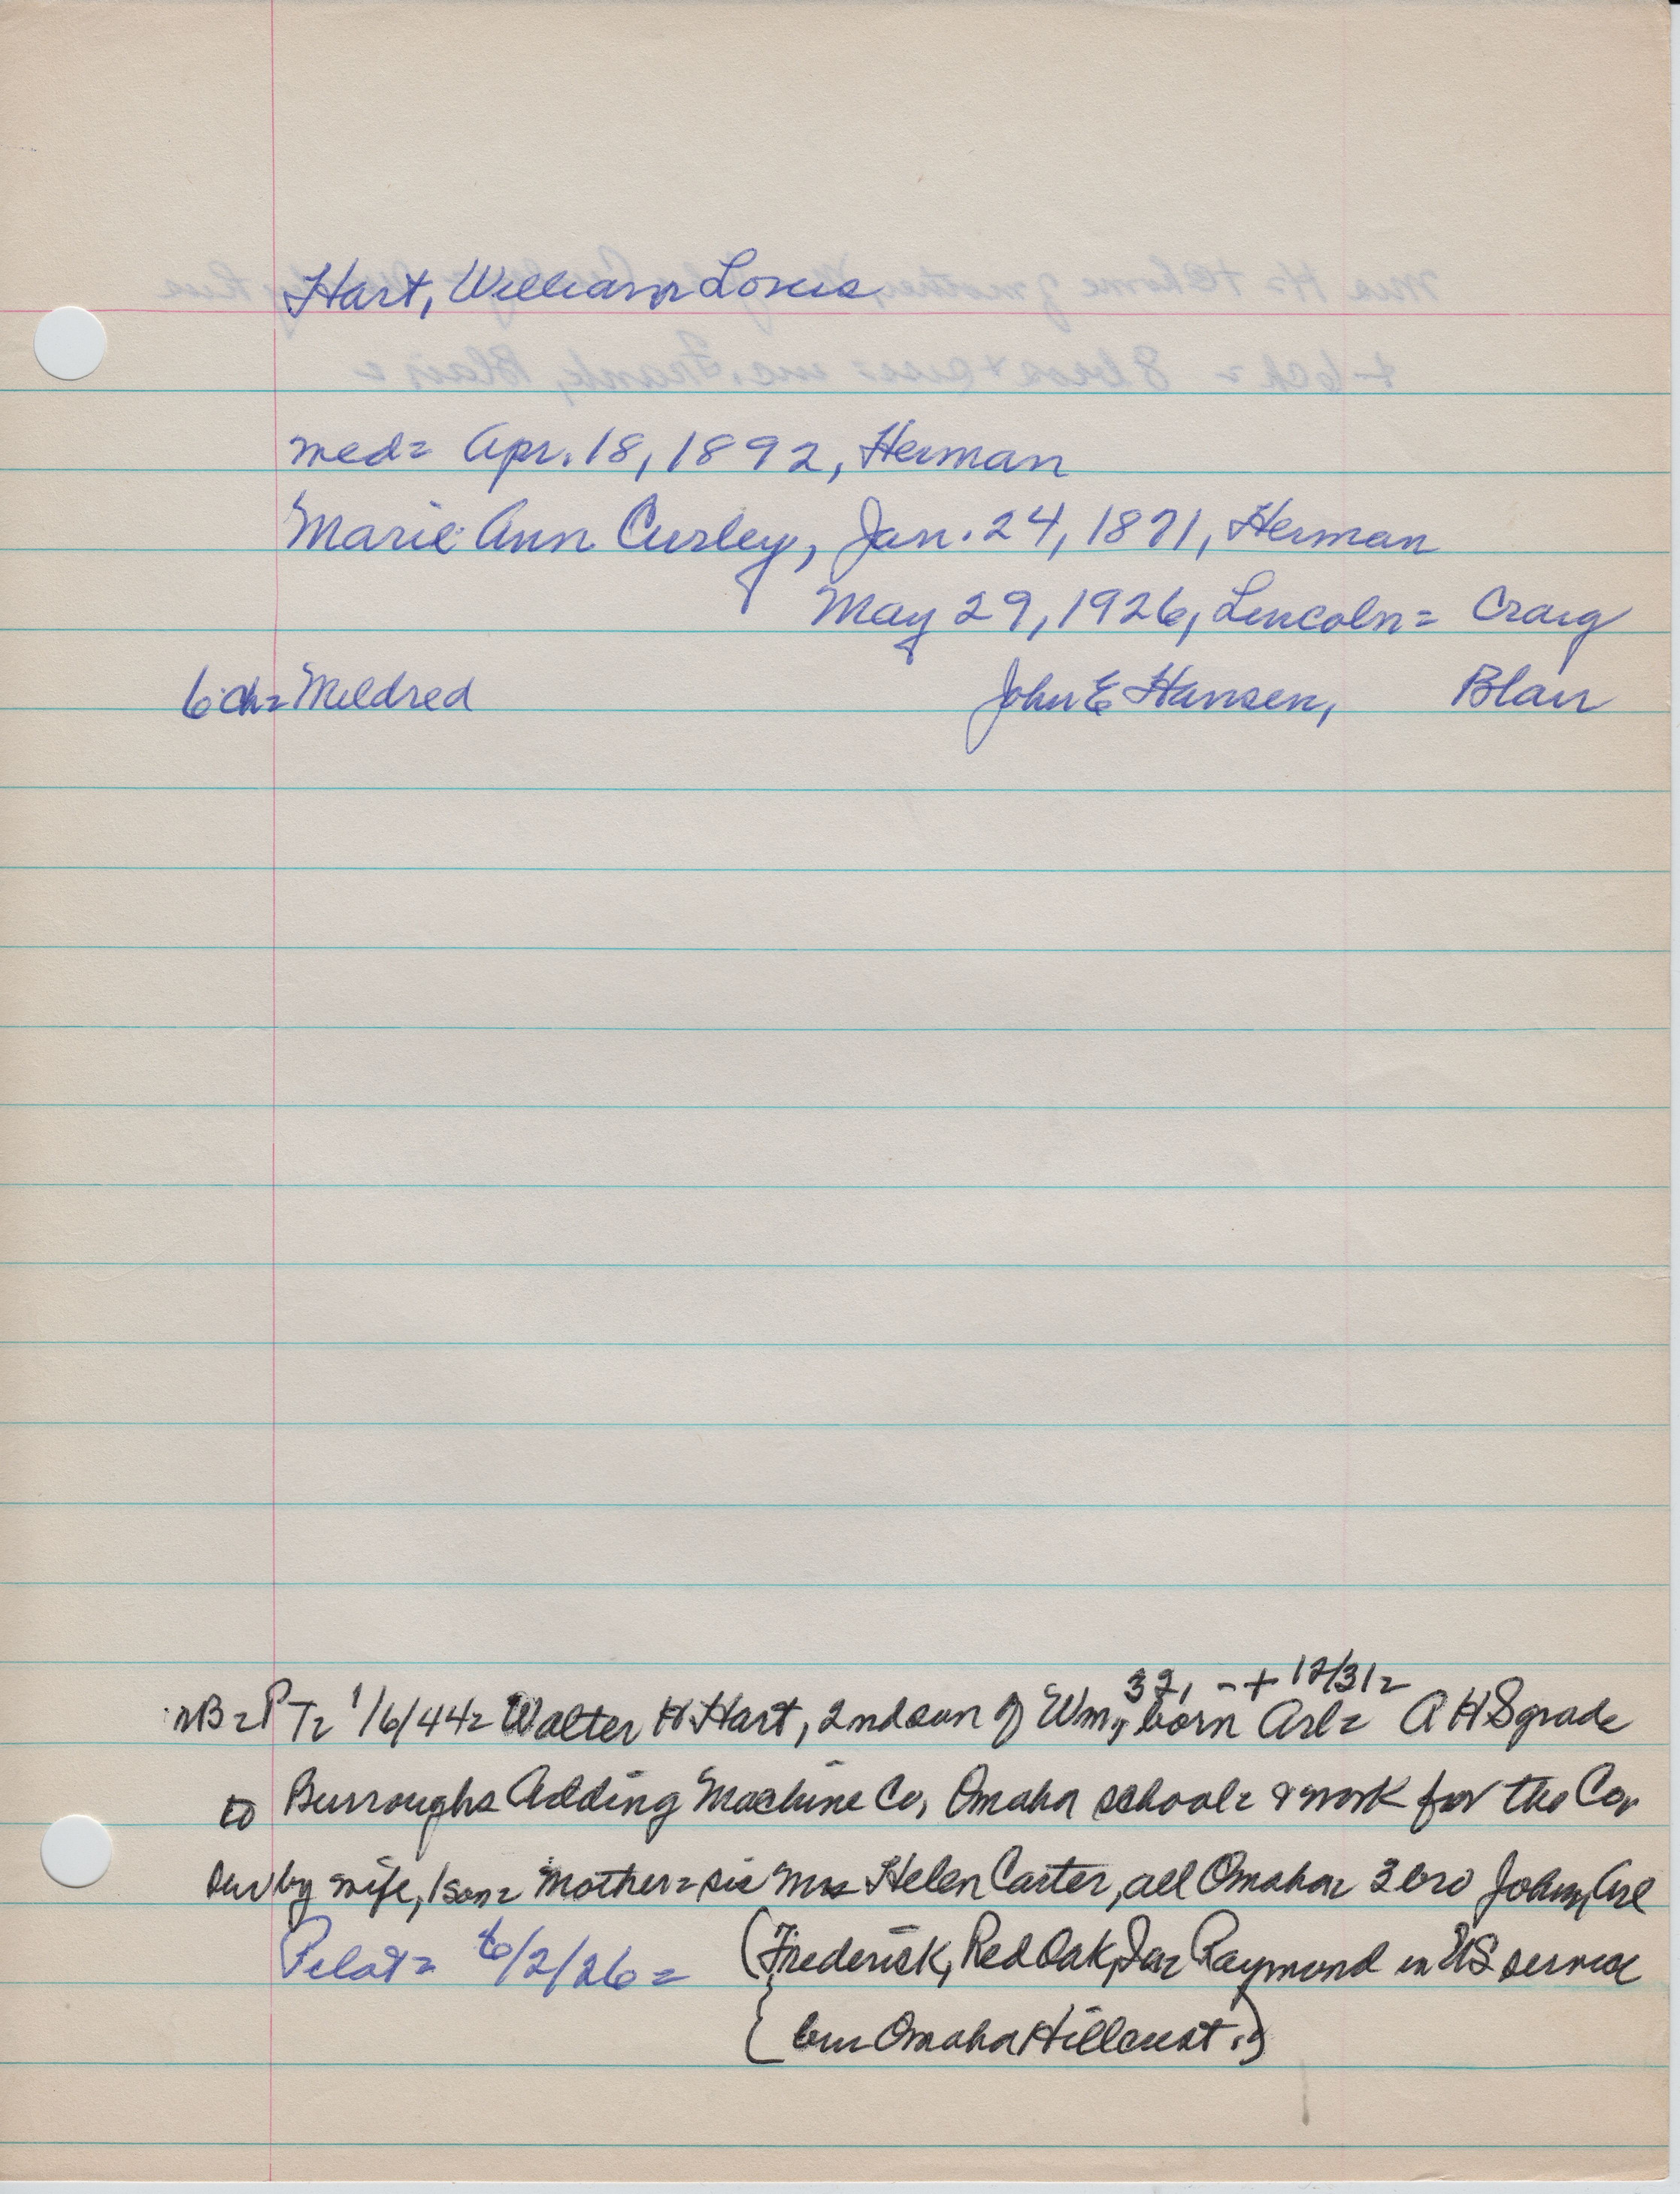 Hart, William Louis
med= Apr. 18, 1892, Herman
Marie Ann Curley, Jan. 24, 1871, Herman
May 29, 1926, Lincoln= Craig
6 ch= Mildred John E Hansen, Blair
37, - + 12/31=
NB= PT= 1/6/44= Walter H. Hart, 2nd son of Wm, born Arl= A H S grade
to Burroughs Adding Machine Co, Omaha school= & work for the Co,
sur by wife, 1 son= Mother= sis Mrs Helen Carter, all Omaha= 3 bro John, Arl
Pilot= 6/2/26= (Frederick, Red Oak, Ia= Raymond in US service
bur Omaha Hillcrest.)